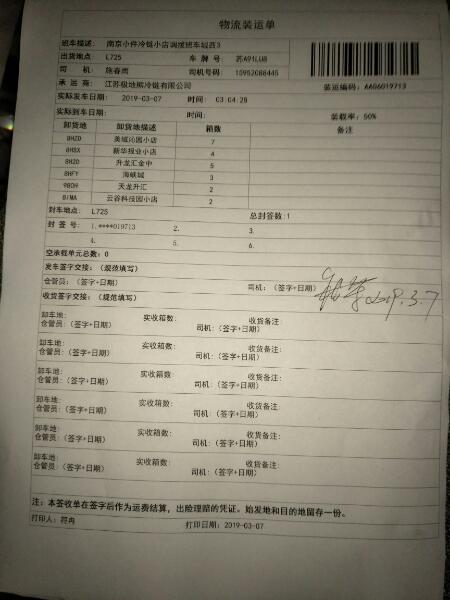 物流装运单
班车描述: 南京小件冷链小店调拨班车城西3
出货地点: L725 车 牌 号: 苏A91LU8
司 机: 施春雨 司机号码: 15952088445
承 运 商: 江苏极地熊冷链有限公司 装运编码: AA06019713
实际发车日期: 2019-03-07 时间: 03:04:28
实际到车日期: 时间: 装载率: 50%
卸货地 卸货地描述 箱数 备注
8HZD 美域沁园小店 7
8HSX 新华报业小店 4
8HZO 升龙汇金中 5
8HFY 海峡城 3
980H 天龙升汇 2
81MA 云谷科技园小店 2
封车地点: L725 总封签数:1
封 签 号: 1.****019713 2. 3.
4. 5. 6.
空承载单元总数: 0
发车签字交接: (规范填写)
仓管员: (签字+日期) 司机: (签字+日期) 2019.3.7
收货签字交接: (规范填写)
卸车地: 实收箱数: 收货备注:
仓管员: (签字+日期) 司机: (签字+日期)
卸车地: 实收箱数: 收货备注:
仓管员: (签字+日期) 司机: (签字+日期)
卸车地: 实收箱数: 收货备注:
仓管员: (签字+日期) 司机: (签字+日期)
卸车地: 实收箱数: 收货备注:
仓管员: (签字+日期) 司机: (签字+日期)
卸车地: 实收箱数: 收货备注:
仓管员: (签字+日期) 司机: (签字+日期)
卸车地: 实收箱数: 收货备注:
仓管员: (签字+日期) 司机: (签字+日期)
注: 本签收单在签字后作为运费结算, 出险理赔的凭证。始发地和目的地留存一份。
打印人: 符冉 打印日期: 2019-03-07